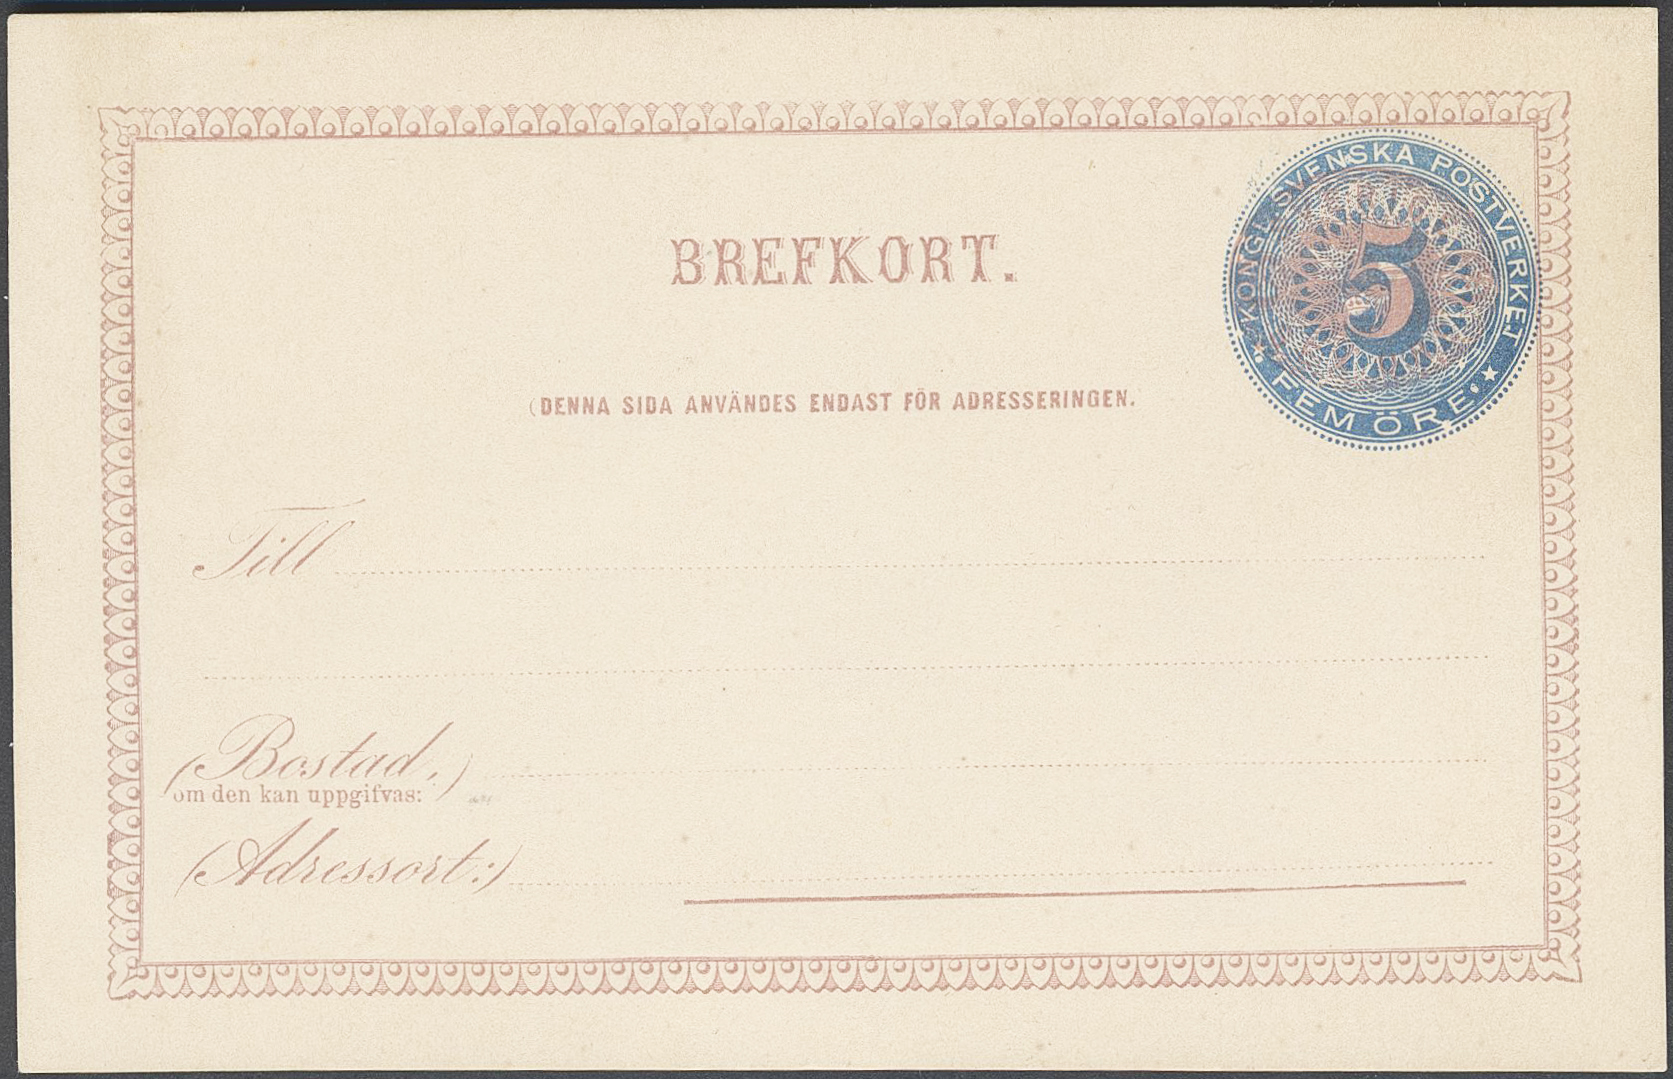 KONGL. SVENSKA POSTVERKET
5
FEM ÖRE
BREFKORT.
(DENNA SIDA ANVÄNDES ENDAST FÖR ADRESSERINGEN.
Till
(Bostad.)
om den kan uppgifvas:
(Adressort:)